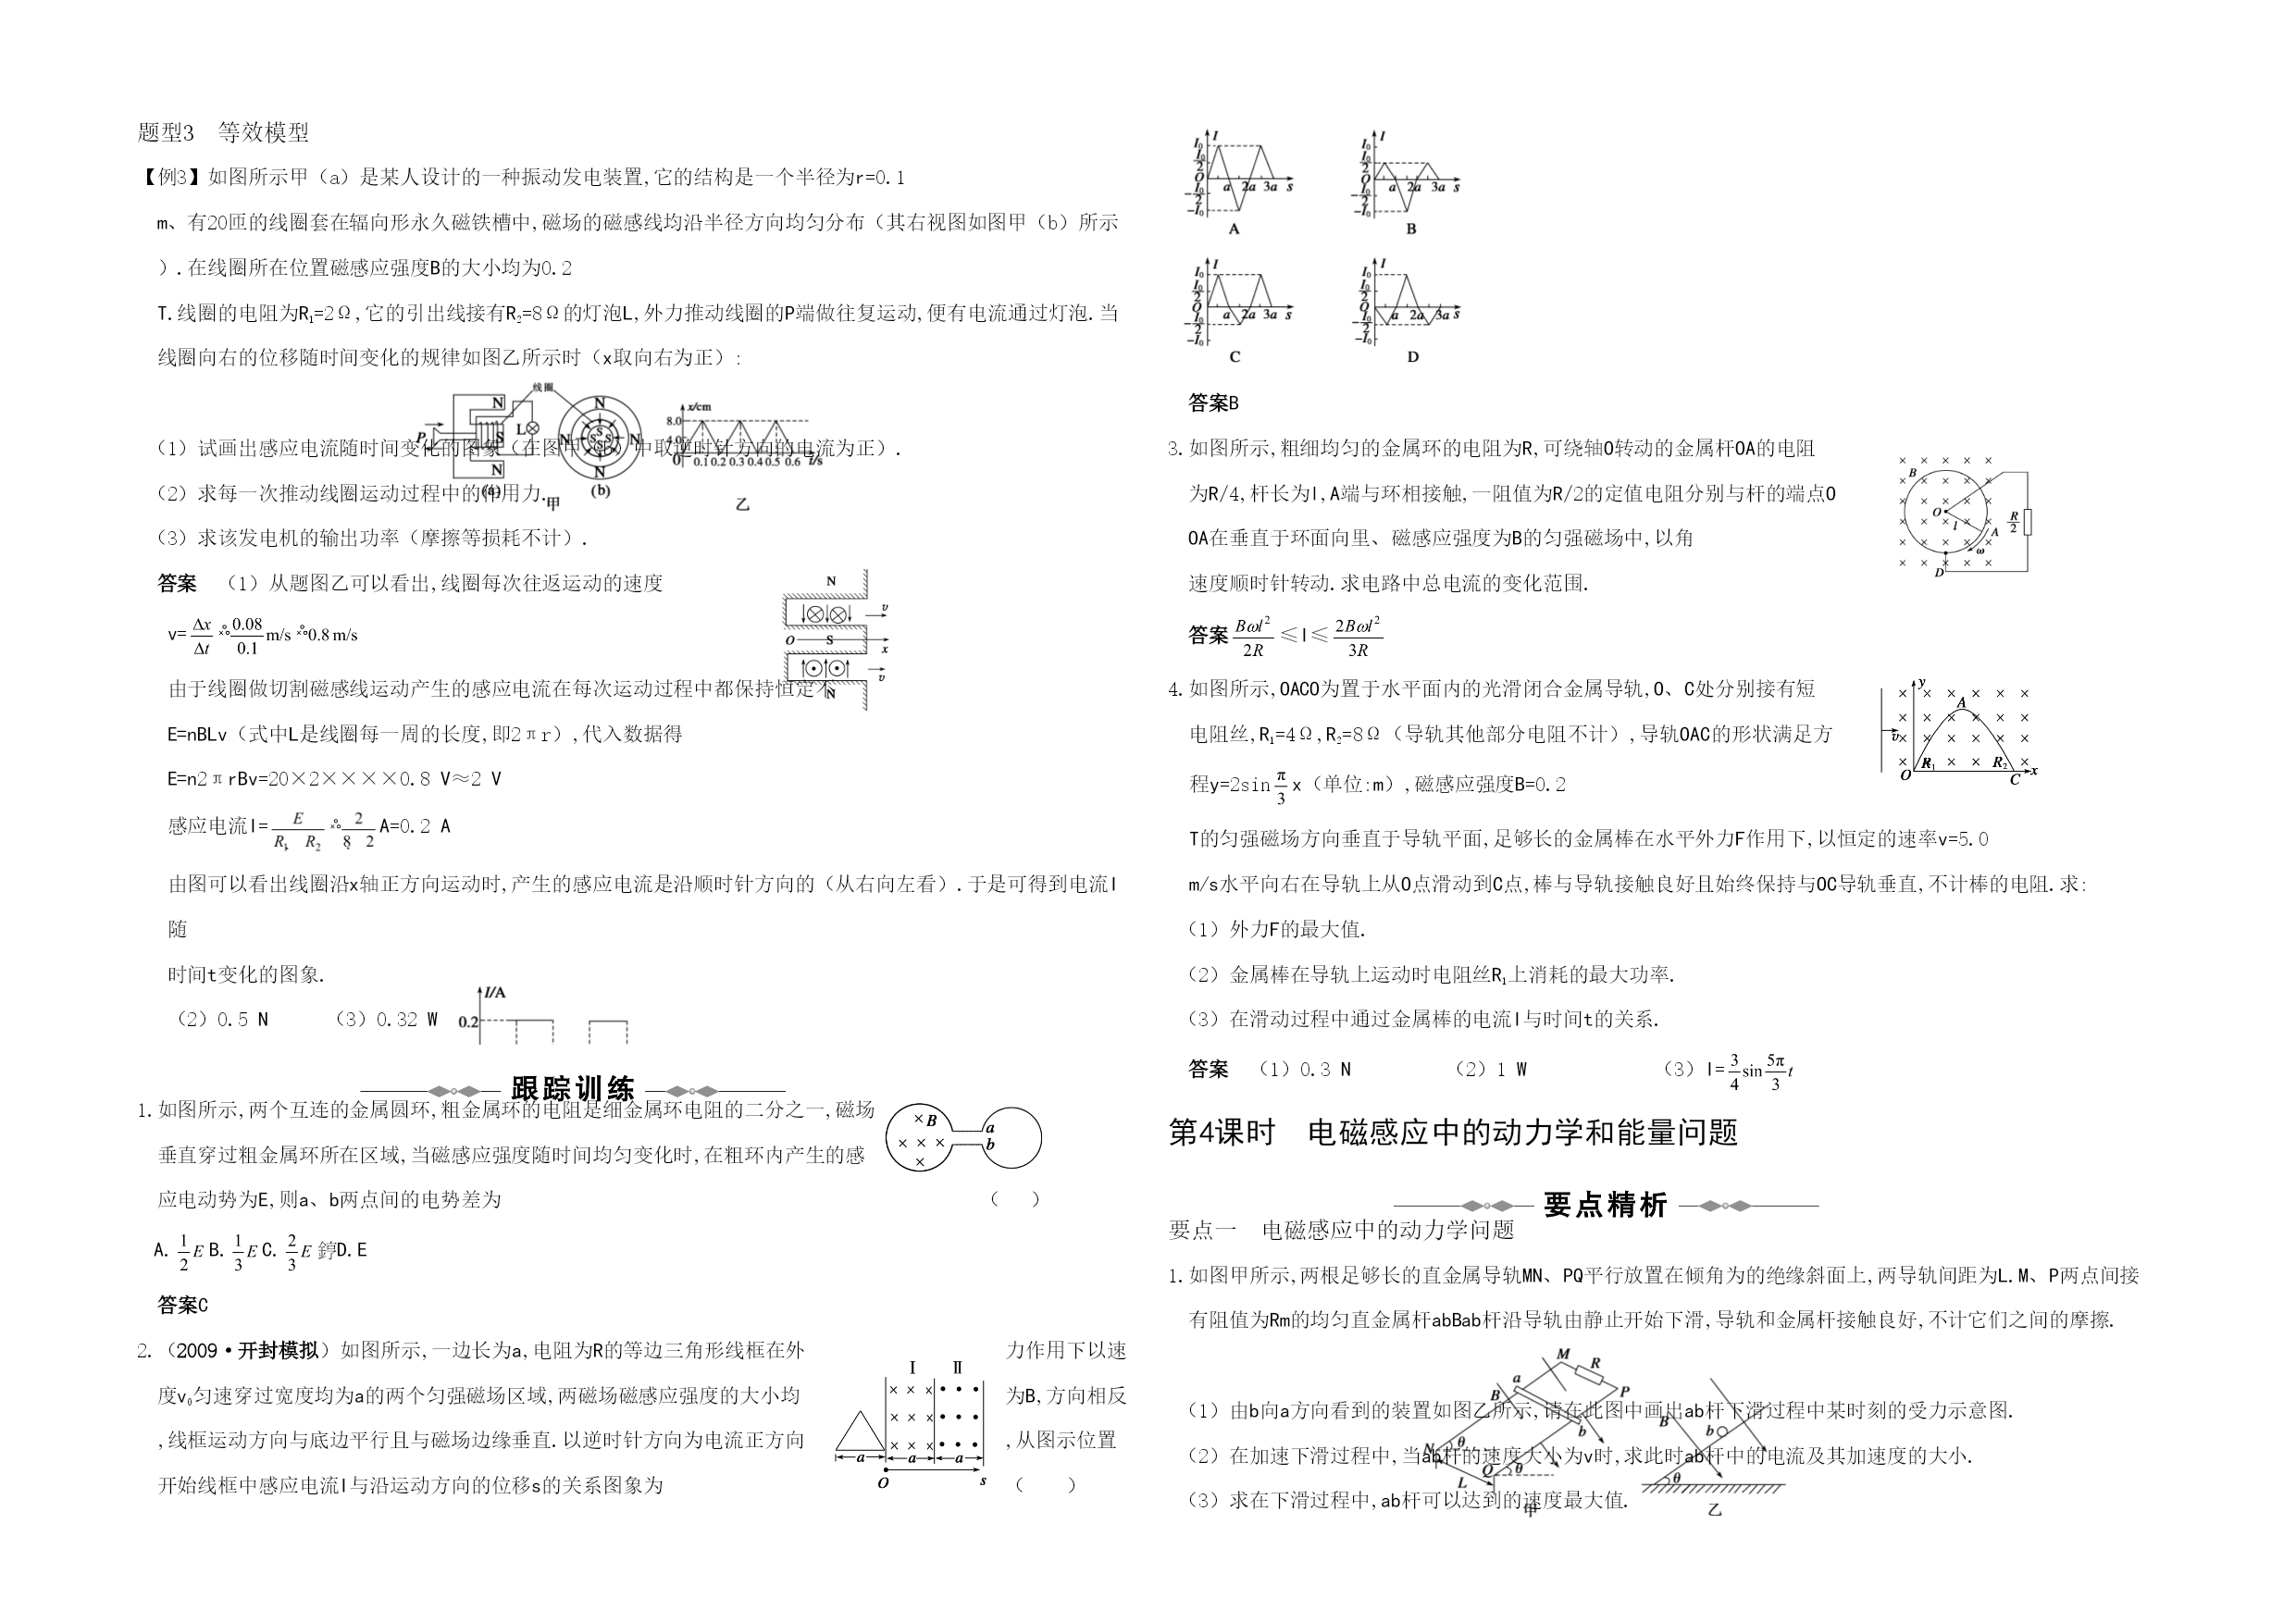 题型3　等效模型
【例3】如图所示甲（a）是某人设计的一种振动发电装置,它的结构是一个半径为r=0.1
m、有20匝的线圈套在辐向形永久磁铁槽中,磁场的磁感线均沿半径方向均匀分布（其右视图如图甲（b）所示
）.在线圈所在位置磁感应强度B的大小均为0.2
T.线圈的电阻为R₁=2Ω,它的引出线接有R₂=8Ω的灯泡L,外力推动线圈的P端做往复运动,便有电流通过灯泡.当
线圈向右的位移随时间变化的规律如图乙所示时（x取向右为正）:
线圈
N
P
S
L
N
(a)
N
N
S
S
S
N
N
(b)
甲
x/cm
8.0
4.0
0
0.1 0.2 0.3 0.4 0.5 0.6 t/s
乙
（1）试画出感应电流随时间变化的图象（在图甲（b）中取逆时针方向的电流为正）.
（2）求每一次推动线圈运动过程中的作用力.
（3）求该发电机的输出功率（摩擦等损耗不计）.
答案　（1）从题图乙可以看出,线圈每次往返运动的速度
v=Δx/Δt 0.08/0.1 m/s 0.8 m/s
N
v
O
S
x
v
N
由于线圈做切割磁感线运动产生的感应电流在每次运动过程中都保持恒定不
E=nBLv（式中L是线圈每一周的长度,即2πr）,代入数据得
E=n2πrBv=20×2××××0.8 V≈2 V
感应电流I=E/R₁ R₂ 2/8 2 A=0.2 A
由图可以看出线圈沿x轴正方向运动时,产生的感应电流是沿顺时针方向的（从右向左看）.于是可得到电流I
随
时间t变化的图象.
（2）0.5 N　　（3）0.32 W
I/A
0.2
跟踪训练
1.如图所示,两个互连的金属圆环,粗金属环的电阻是细金属环电阻的二分之一,磁场
垂直穿过粗金属环所在区域,当磁感应强度随时间均匀变化时,在粗环内产生的感
应电动势为E,则a、b两点间的电势差为　（　）
B
a
b
A. 1/2 E B. 1/3 E C. 2/3 E D.E
答案C
2.（2009·开封模拟）如图所示,一边长为a,电阻为R的等边三角形线框在外力作用下以速
度v₀匀速穿过宽度均为a的两个匀强磁场区域,两磁场磁感应强度的大小均为B,方向相反
,线框运动方向与底边平行且与磁场边缘垂直.以逆时针方向为电流正方向,从图示位置
开始线框中感应电流I与沿运动方向的位移s的关系图象为　（　）
Ⅰ Ⅱ
a a a
O s
I
I₀
I₀/2
O
-I₀/2
-I₀
a 2a 3a s
A
I
I₀
I₀/2
O
-I₀/2
-I₀
a 2a 3a s
B
I
I₀
I₀/2
O
-I₀/2
-I₀
a 2a 3a s
C
I
I₀
I₀/2
O
-I₀/2
-I₀
a 2a 3a s
D
答案B
3.如图所示,粗细均匀的金属环的电阻为R,可绕轴O转动的金属杆OA的电阻
为R/4,杆长为l,A端与环相接触,一阻值为R/2的定值电阻分别与杆的端点O
OA在垂直于环面向里、磁感应强度为B的匀强磁场中,以角
速度顺时针转动.求电路中总电流的变化范围.
B
O
l
A
ω
D
R/2
答案 Bωl²/2R ≤I≤ 2Bωl²/3R
4.如图所示,OACO为置于水平面内的光滑闭合金属导轨,O、C处分别接有短
电阻丝,R₁=4Ω,R₂=8Ω（导轨其他部分电阻不计）,导轨OAC的形状满足方
程y=2sin π/3 x（单位:m）,磁感应强度B=0.2
T的匀强磁场方向垂直于导轨平面,足够长的金属棒在水平外力F作用下,以恒定的速率v=5.0
m/s水平向右在导轨上从O点滑动到C点,棒与导轨接触良好且始终保持与OC导轨垂直,不计棒的电阻.求:
y
A
v
R₁
R₂
O
C
x
（1）外力F的最大值.
（2）金属棒在导轨上运动时电阻丝R₁上消耗的最大功率.
（3）在滑动过程中通过金属棒的电流I与时间t的关系.
答案　（1）0.3 N　（2）1 W　（3）I=3/4 sin 5π/3 t
第4课时　电磁感应中的动力学和能量问题
要点精析
要点一　电磁感应中的动力学问题
1.如图甲所示,两根足够长的直金属导轨MN、PQ平行放置在倾角为的绝缘斜面上,两导轨间距为L.M、P两点间接
有阻值为Rm的均匀直金属杆abBab杆沿导轨由静止开始下滑,导轨和金属杆接触良好,不计它们之间的摩擦.
M
R
a
P
B
b
N
θ
Q
θ
L
甲
B
b
θ
乙
（1）由b向a方向看到的装置如图乙所示,请在此图中画出ab杆下滑过程中某时刻的受力示意图.
（2）在加速下滑过程中,当ab杆的速度大小为v时,求此时ab杆中的电流及其加速度的大小.
（3）求在下滑过程中,ab杆可以达到的速度最大值.